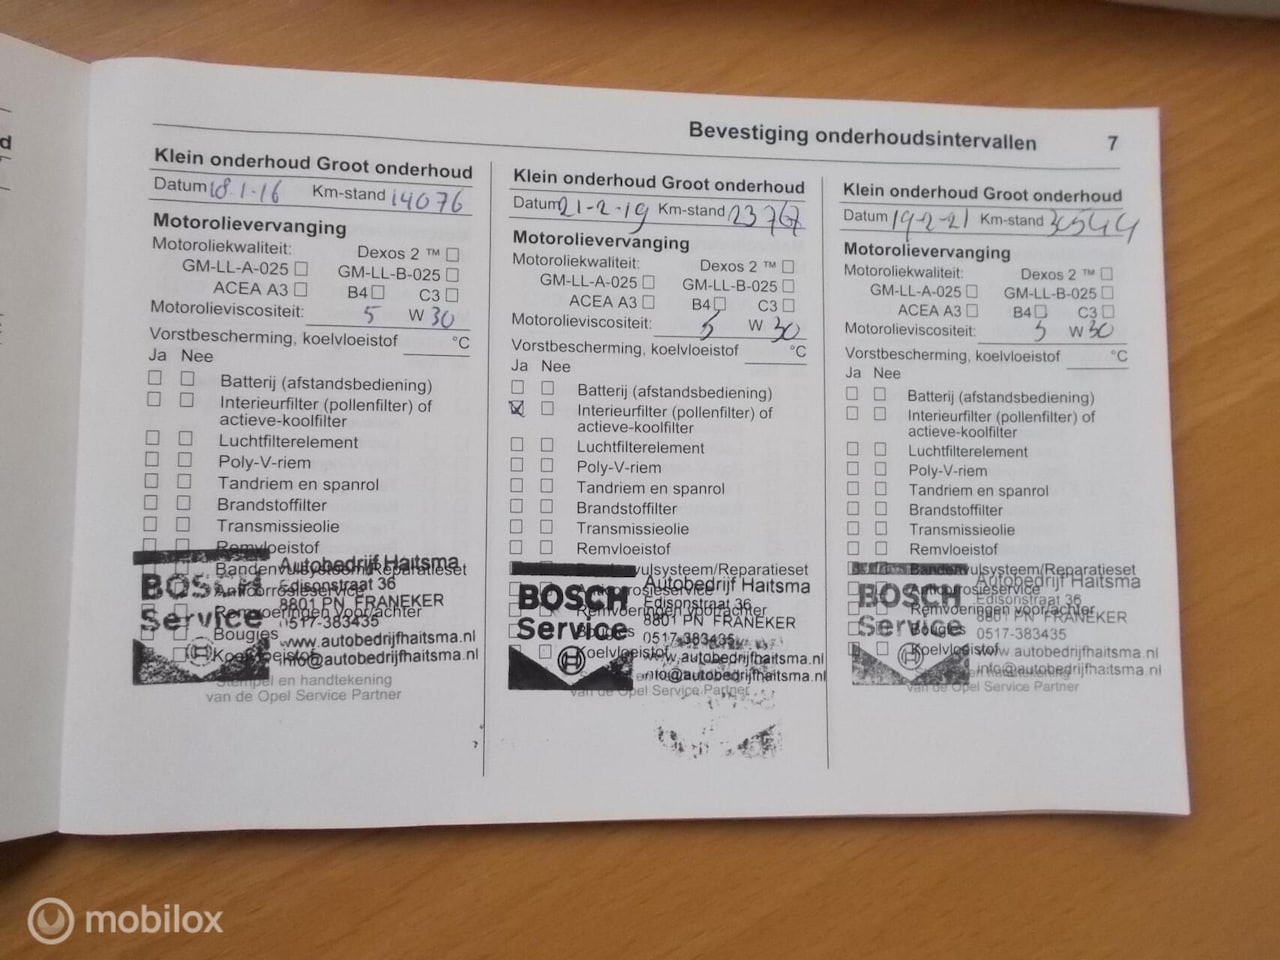 d
Bevestiging onderhoudsintervallen 7
Klein onderhoud Groot onderhoud
Datum 18-1-16 Km-stand 14076
Motorolievervanging
Motoroliekwaliteit: Dexos 2 ™
GM-LL-A-025 GM-LL-B-025
ACEA A3 B4 C3
Motorolieviscositeit: 5 W 30
Vorstbescherming, koelvloeistof °C
Ja Nee
Batterij (afstandsbediening)
Interieurfilter (pollenfilter) of
actieve-koolfilter
Luchtfilterelement
Poly-V-riem
Tandriem en spanrol
Brandstoffilter
Transmissieolie
Remvloeistof
Bandenvulsysteem/Reparatieset
Anticorrosieservice
Remvoeringen voor/achter
Bougies
Koelvloeistof
BOSCH
Service
Autobedrijf Haitsma
Edisonstraat 36
8801 PN FRANEKER
0517-383435
www.autobedrijfhaitsma.nl
info@autobedrijfhaitsma.nl
Stempel en handtekening
van de Opel Service Partner
Klein onderhoud Groot onderhoud
Datum 21-2-19 Km-stand 23767
Motorolievervanging
Motoroliekwaliteit: Dexos 2 ™
GM-LL-A-025 GM-LL-B-025
ACEA A3 B4 C3
Motorolieviscositeit: 5 W 30
Vorstbescherming, koelvloeistof °C
Ja Nee
Batterij (afstandsbediening)
Interieurfilter (pollenfilter) of
actieve-koolfilter
Luchtfilterelement
Poly-V-riem
Tandriem en spanrol
Brandstoffilter
Transmissieolie
Remvloeistof
Bandenvulsysteem/Reparatieset
Anticorrosieservice
Remvoeringen voor/achter
Bougies
Koelvloeistof
BOSCH
Service
Autobedrijf Haitsma
Edisonstraat 36
8801 PN FRANEKER
0517-383435
www.autobedrijfhaitsma.nl
info@autobedrijfhaitsma.nl
van de Opel Service Partner
Klein onderhoud Groot onderhoud
Datum 19-2-21 Km-stand 3544
Motorolievervanging
Motoroliekwaliteit: Dexos 2 ™
GM-LL-A-025 GM-LL-B-025
ACEA A3 B4 C3
Motorolieviscositeit: 5 W 30
Vorstbescherming, koelvloeistof °C
Ja Nee
Batterij (afstandsbediening)
Interieurfilter (pollenfilter) of
actieve-koolfilter
Luchtfilterelement
Poly-V-riem
Tandriem en spanrol
Brandstoffilter
Transmissieolie
Remvloeistof
Bandenvulsysteem/Reparatieset
Anticorrosieservice
Remvoeringen voor/achter
Bougies
Koelvloeistof
BOSCH
Service
Autobedrijf Haitsma
Edisonstraat 36
8801 PN FRANEKER
0517-383435
www.autobedrijfhaitsma.nl
info@autobedrijfhaitsma.nl
en handtekening
van de Opel Service Partner
mobilox